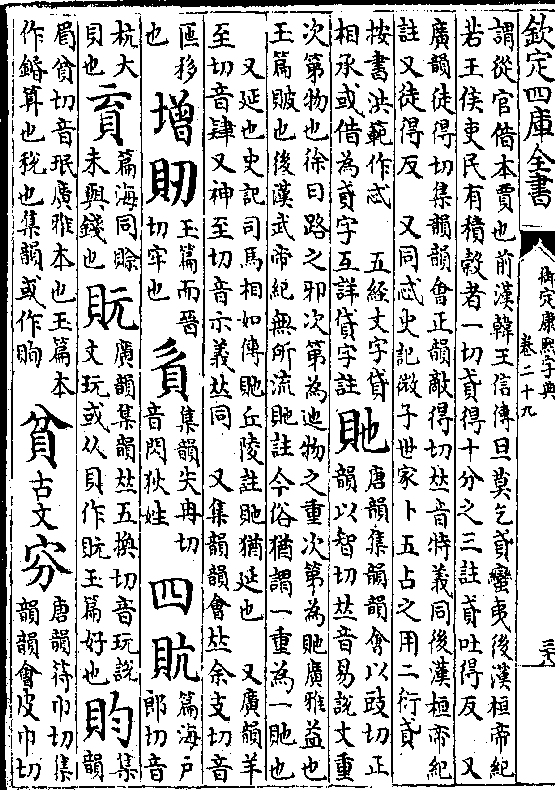 欽定四庫全書
御定康熙字典
卷二十九
謂從官借本賈也前漢韓王信傳旦莫乞貣蠻夷後漢桓帝紀
若王侯吏民有積穀者一切貣得十分之三註貣吐得反　又
廣韻徒得切集韻韻會正韻敵得切𠀤音特義同後漢桓帝紀
註又徒得反　又同忒史記微子世家卜五占之用二衍貣
按書洪範作忒　五經文字貸
相承或借為貣字互詳貸字註
貤
唐韻集韻韻會以豉切正
韻以智切𠀤音易說文重
次第物也徐曰路之邪次第為迆物之重次第為貤廣雅益也
玉篇貱也後漢武帝紀無所流貤註今俗猶謂一重為一貤也
又延也史記司馬相如傳貤丘陵註貤猶延也　又廣韻羊
至切音肄又神至切音示義𠀤同　又集韻韻會𠀤余支切音
匜移
也
增
玉篇而晉
切牢也
集韻失冉切
音閃狄姓
四
貥
篇海戶
郎切音
杭大
貝也
篇海同賒
未與錢也
貦
廣韻集韻𠀤五換切音玩說
文玩或从貝作貦玉篇好也
集
韻
眉貧切音珉廣雅本也玉篇本
作錉算也稅也集韻或作
貧
古文
唐韻符巾切集
韻韻會皮巾切